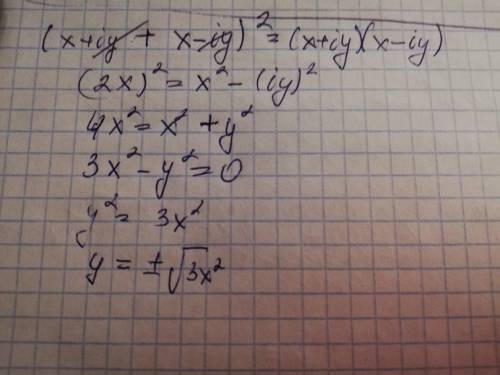 (x+iy + x-iy)² = (x+iy)(x-iy)
(2x)² = x² - (iy)²
4x² = x² + y²
3x² - y² = 0
y² = 3x²
y = ±√3x²